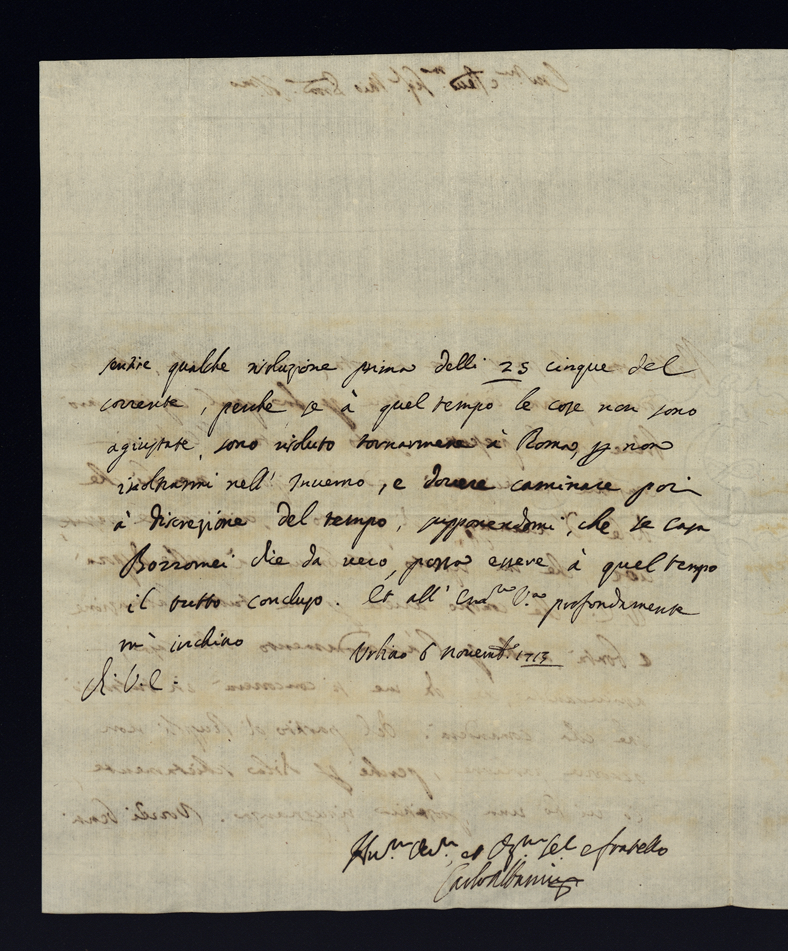 sentire qualche risoluzione prima delli 25 cinque del
corrente, perche se à quel tempo le cose non sono
agiustate, sono risoluto tornarmene à Roma, p non
inoltrarmi nell' Inuerno, e douere caminare poi
à discrezione del tempo, supponendomi, che se Casa
Borromei dice da uero, possa essere à quel tempo
il tutto concluso. Et all' profondamente
m' inchino
Urbino 6 Nouemb. 1713
Di V. E.
Hu.mo Deu.mo, et Obb.mo Se.e e fratello
Carlo Albani